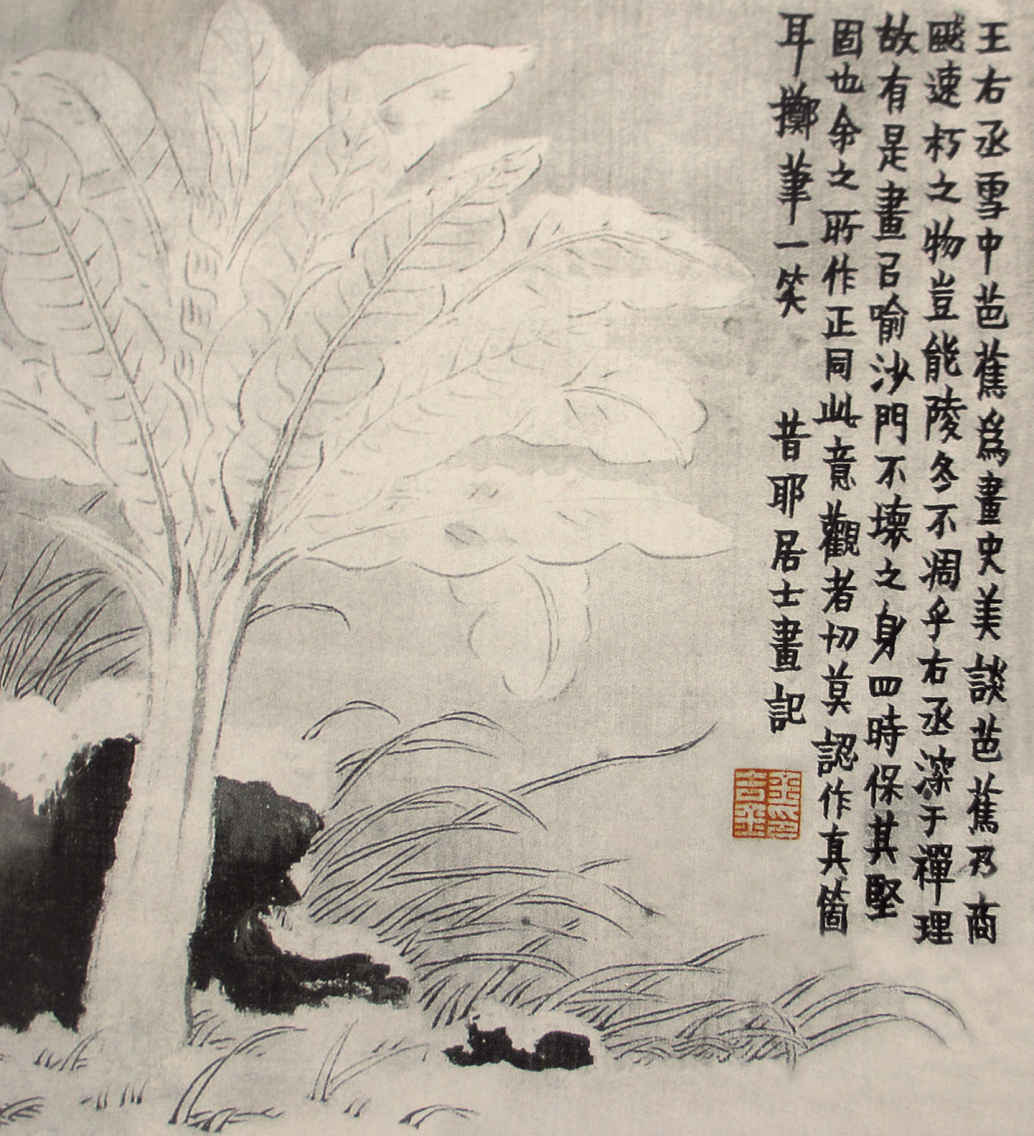 王右丞雪中芭蕉爲畫史美談芭蕉乃商
飈速朽之物豈能陵冬不凋乎右丞深于禪理
故有是畫㠯喻沙門不壞之身四時保其堅
固也余之所作正同此意觀者切莫認作真箇
耳擲筆一笑 昔耶居士畫記
金吉金印